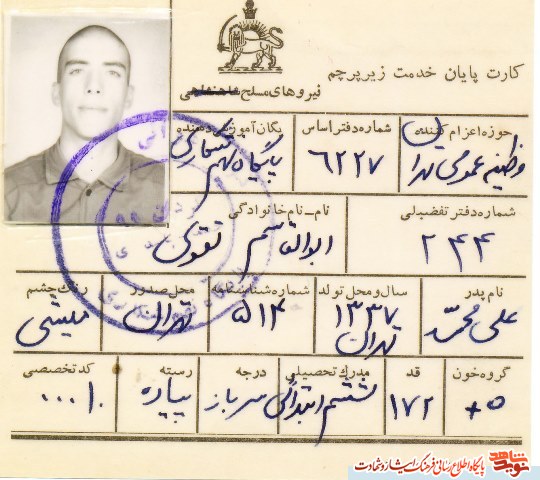 کارت پایان خدمت زیرپرچم
نیروهای مسلح شاهنشاهی
حوزه اعزام کننده
وظیفه عمومی تهران
شماره دفتر اساس
۶۲۲۷
یگان آموزش دهنده
پایگاه
شماره دفتر تفضیلی
۲۴۴
نام-نام خانوادگی
ابوالقاسم تقوی
نام پدر
علی محمد
سال و محل تولد
۱۳۳۷
تهران
شماره شناسنامه
۵۱۴
محل صدور
تهران
رنگ چشم
میشی
گروه خون
o+
قد
۱۷۲
مدرک تحصیلی
ششم ابتدائی
درجه
سرباز
رسته
پیاده
کد تخصصی
نوید شاهد
پایگاه اطلاع رسانی فرهنگ ایثار و شهادت